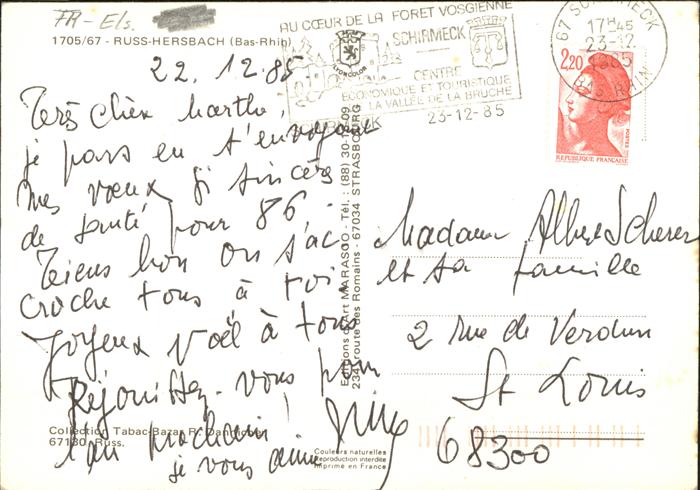 FR-Els.
1705/67 - RUSS-HERSBACH (Bas-Rhin)
AU CŒUR DE LA FORET VOSGIENNE
SCHIRMECK
CENTRE
ECONOMIQUE ET TOURISTIQUE
LA VALLÉE DE LA BRUCHE
23-12-85
67 SCHIRMECK
17H45
23-12
1985
BAS RHIN
2,20
POSTES
REPUBLIQUE FRANÇAISE
22.12.85
Très chère Marthe,
je pars en t'envoyant
mes vœux si sincères
de santé pour 86.
Tiens bon on s'ac
croche tous à toi.
Joyeux Noël à tous
Réjouissez-vous pour
l'an prochain !
je vous aime
Madame Albert Scherer
et sa famille
2 rue de Verdun
St Louis
68300
Editions d'Art MARASCO - Tél.: (88) 30-19-09
234, route des Romains - 67034 STRASBOURG
Collection Tabac-Bazar R.
67130 Russ.
Couleurs naturelles
Reproduction interdite
Imprimé en France